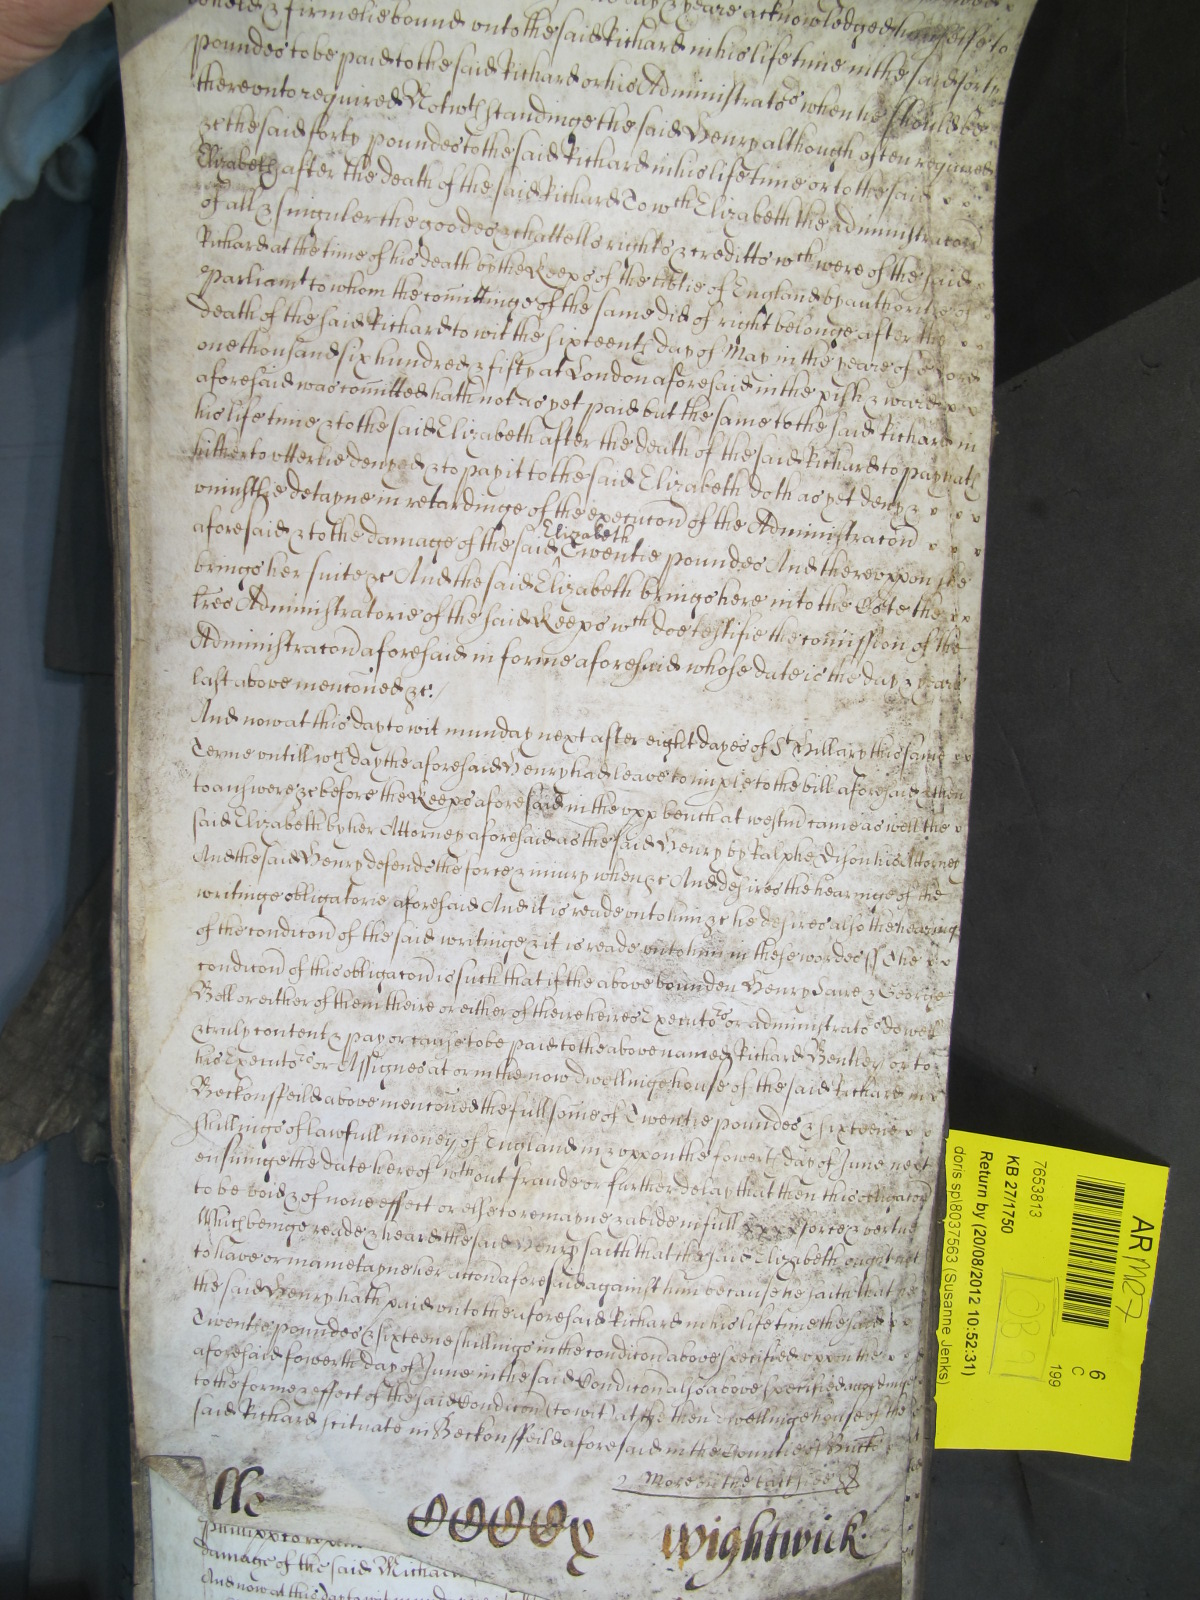 day & yeare acknowledged himselfe to
& firmelie bound unto the said Richard in his life time in the said forty
poundes to be paid to the said Richard or his Administrators when he should be
thereunto required Notwthstandinge the said Henry although often required
&c the said forty poundes to the said Richard in his life time or to the said
Elizabeth after the death of the said Richard To wch Elizabeth the administracon
of all & singuler the goodes & chattells rights & creditts wch were of the said
Richard at the time of his death by the Keeps of the libtie of England by authoritie of
Parliamt to whom the comittinge of the same did of right belonge after the
death of the said Richard to wit the sixteenth day of May in the yeare of or Lord
one thousand six hundred & fifty at London aforesaid in the pish & ward
aforesaid was comitted hath not as yet paid but the same to the said Richard in
his life time & to the said Elizabeth after the death of the said Richard to pay hath
hitherto utterlie denyed & to pay it to the said Elizabeth doth as yet deny &
uniustlie detayne in retardinge of the execucon of the Administracon
aforesaid & to the damage of the said Elizabeth Twentie poundes And thereuppon she
brings her suite &c And the said Elizabeth brings here into the Cote the
lres Administratorie of the said Keeps wch doe testifie the comission of the
Administracon aforesaid in forme aforesaid whose date is the day & yeare
last above menconed &c.
And now at this day to wit munday next after eight dayes of St Hillary this same
Terme untill wch day the aforesaid Henry had leave to imple to the bill aforesaid & then
to answere &c before the Keeps aforesaid in the upp bench at westm came as well the
said Elizabeth by her Attorney aforesaid as the said Henry by Ralphe Dison his Attorney
And the said Henry defends the force & iniury when &c And desires the hearinge of the
writinge obligatorie aforesaid And it is reade unto him &c he desires also the hearinge
of the condicon of the said writinge & it is reade unto him in these wordes ss The
condicon of this obligacon is such that if the above bounden Henry Lane & George
Bell or either of them theire or either of theire heires Executors or administrators do well
& truly content & pay or cause to be paid to the above named Richard Bentley or to
his Executors or Assignes at or in the now dwellinge house of the said Richard in
Beckonsfeild above menconed the full some of Twentie poundes & sixteene
shillings of lawfull money of England in & uppon the fowerth day of June next
ensuinge the date hereof without fraude or further delay that then this obligacon
to be void & of none effect or else to remayne & abide in full force & vertue
Which beinge reade & heard the said Henry saith that the said Elizabeth ought not
to have or mainetayne her accon aforesaid against him because he saith that he
the said Henry hath paid unto the aforesaid Richard in his life time the said
Twentie poundes & sixteene shillings in the condicon above specified uppon the
aforesaid fowerth day of June in the said Condicon also above specified accordinge
to the forme & effect of the said Condicon (to wit) at the then dwellinge house of the
said Richard scituate in Beckonsfeild aforesaid in the Countie of Buck
More on the backside
Wightwick
damage of the said Michael
And now at this day to wit
AR m27
6
C
199
7653813
KB 27/1750
Return by (20/08/2012 10:52:31)
doris spl8037563 (Susanne Jenks)